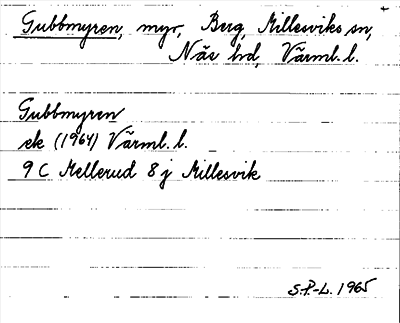 Gubbmyren, myr, Berg, Millesviks sn,
Näs hd, Värml. l.
Gubbmyren
ek (1964) Värml. l.
9 C Mellerud 8 j Millesvik
S.P.-L. 1965